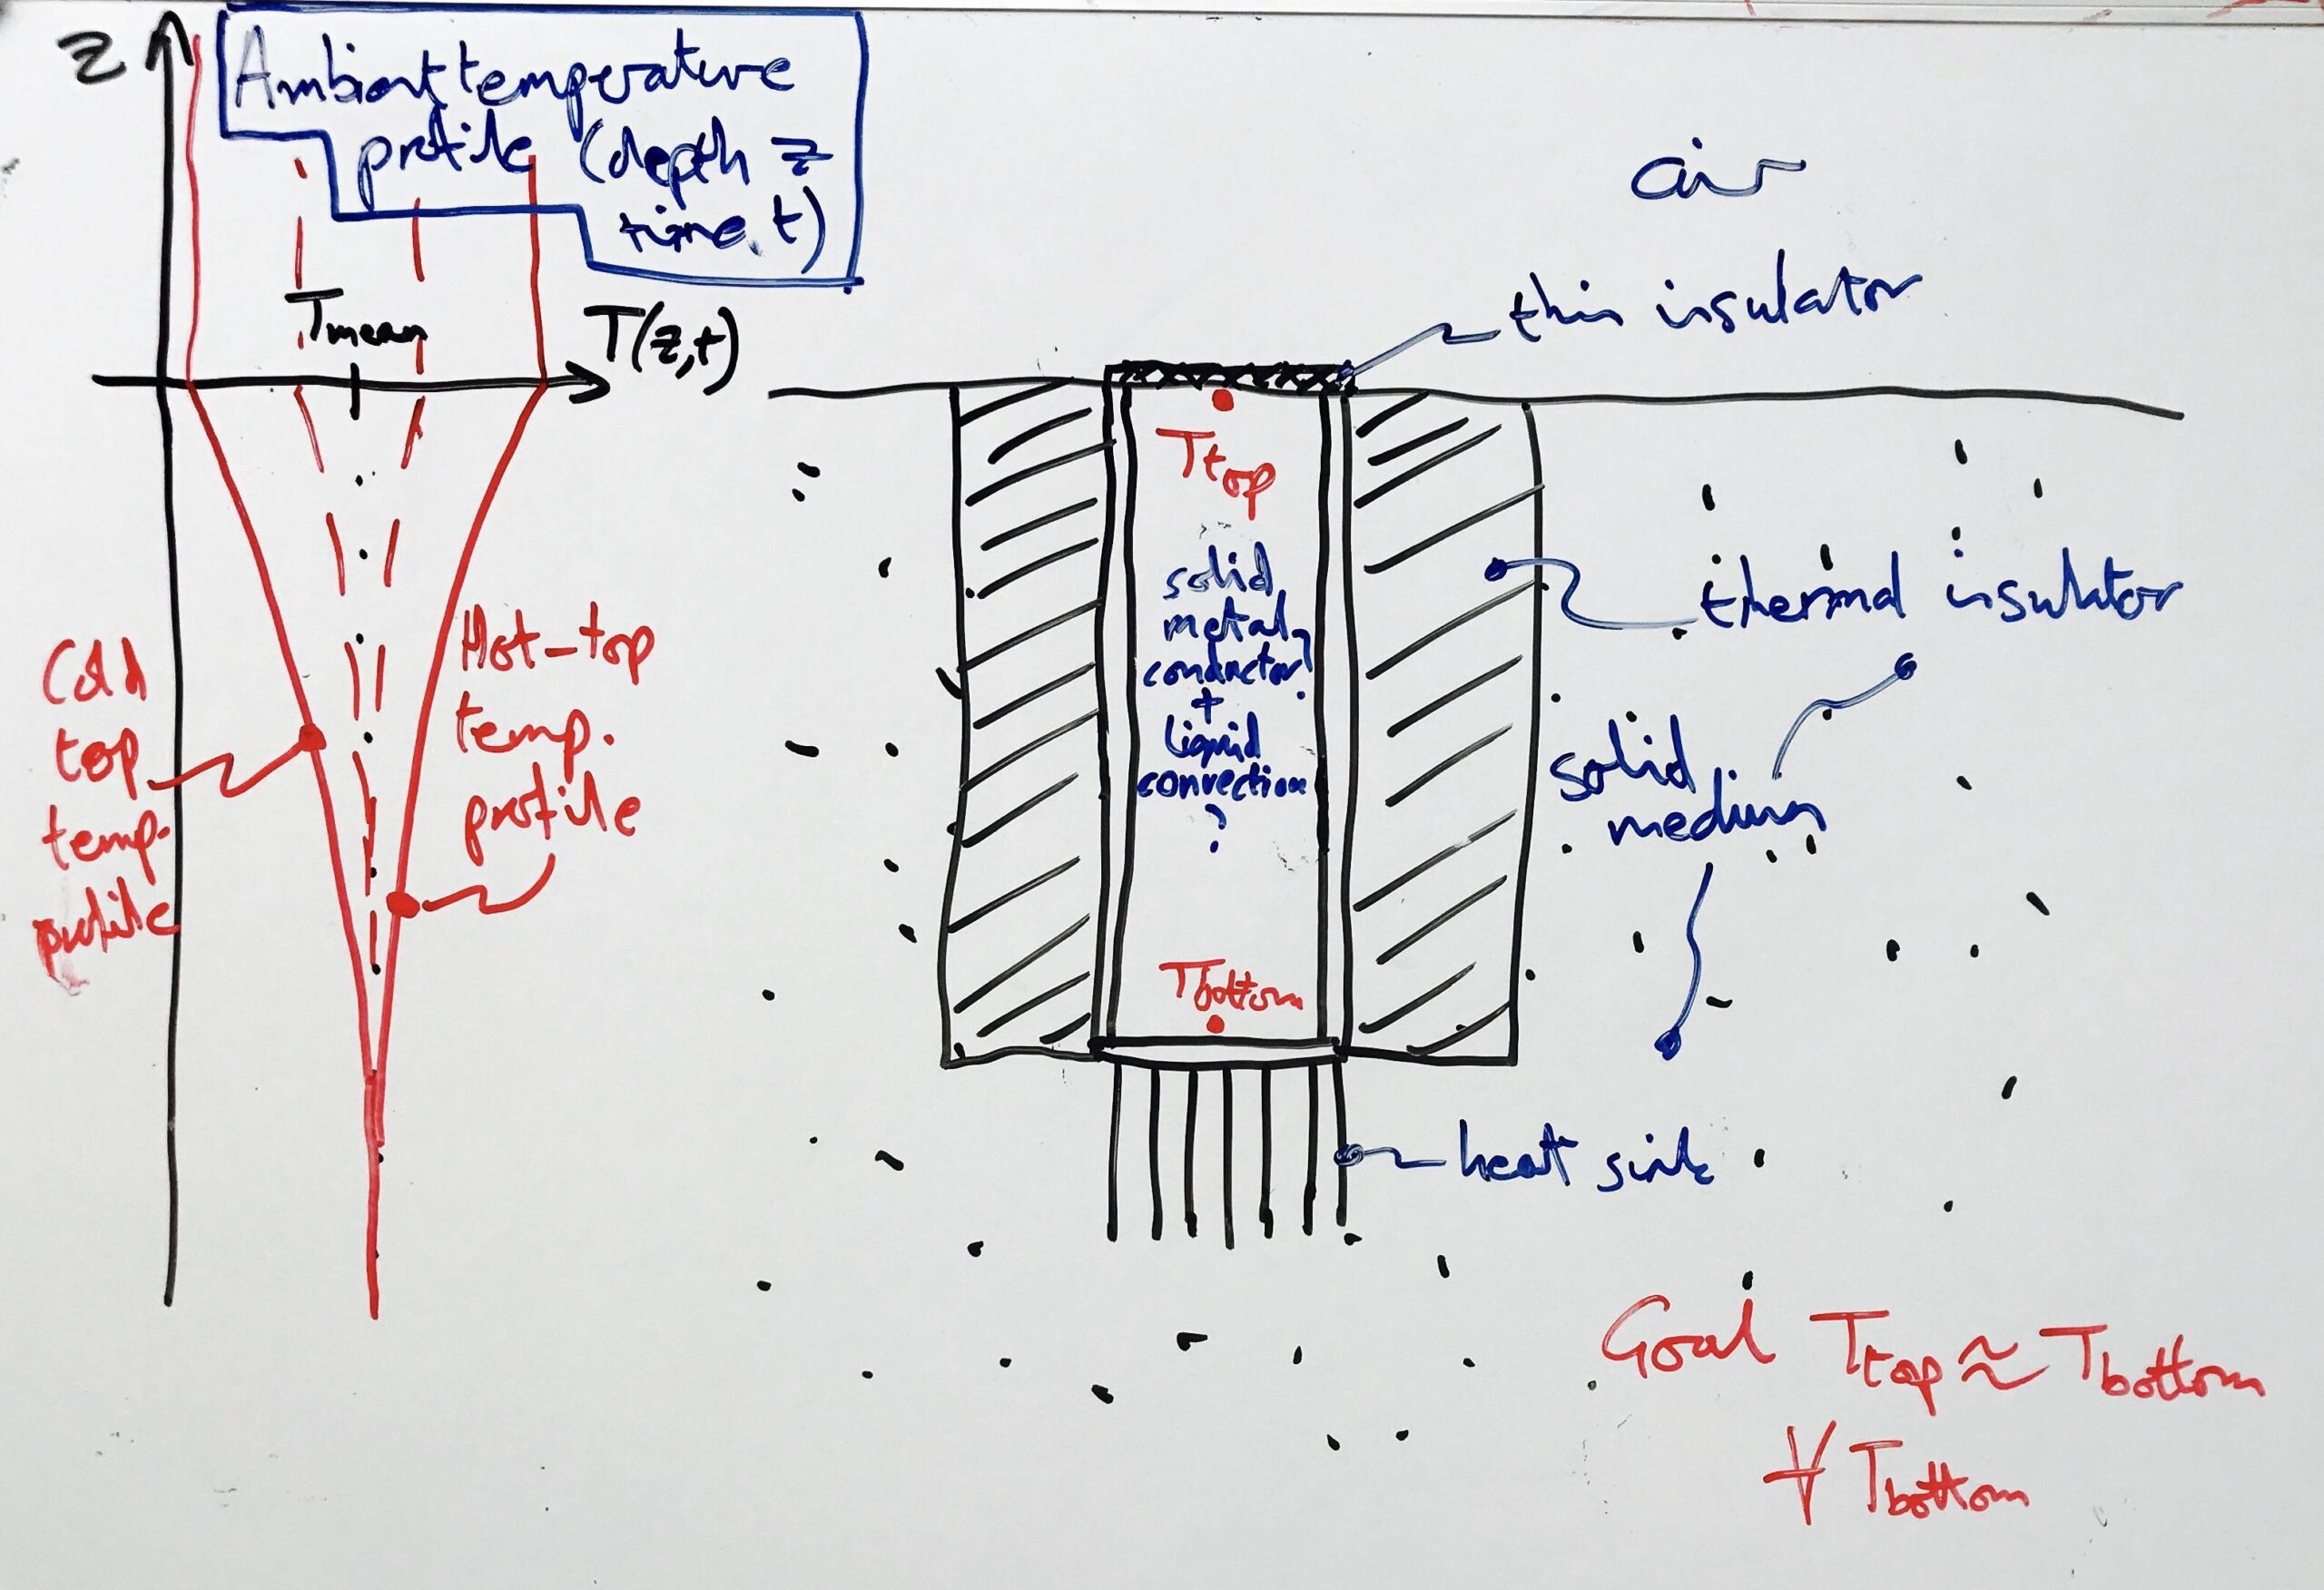 z
Ambient temperature
profile (depth z
time, t)
Tmean
T(z,t)
Cold
top
temp.
profile
Hot-top
temp.
profile
air
thin insulator
Ttop
solid
metal
conductor?
+
liquid
convection
?
Tbottom
thermal insulator
solid
medium
heat sink
Goal Ttop ≈ Tbottom
∀ Tbottom